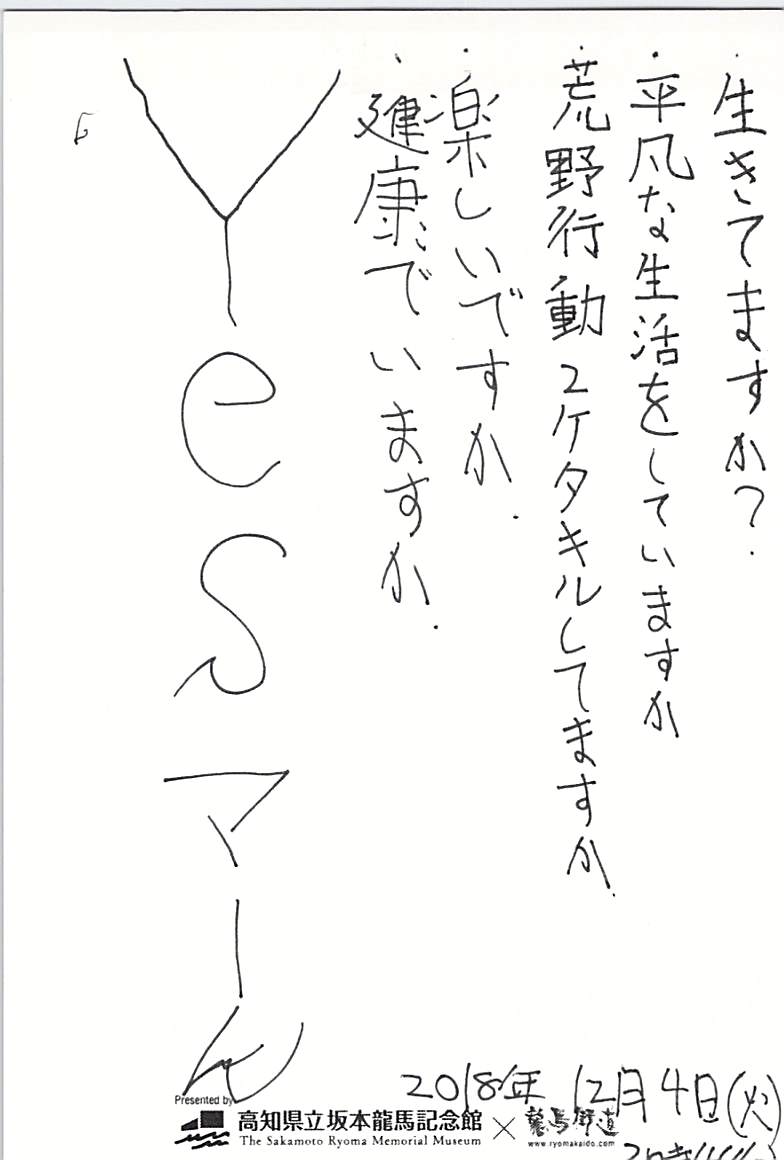 ・生きてますか？
・平凡な生活をしていますか
・荒野行動２ケタキルしてますか
・楽しいですか
・健康でいますか
Yesマーん
2018年12月4日(火)
Presented by
高知県立坂本龍馬記念館 × 龍馬街道
The Sakamoto Ryoma Memorial Museum
www.ryomakaido.com